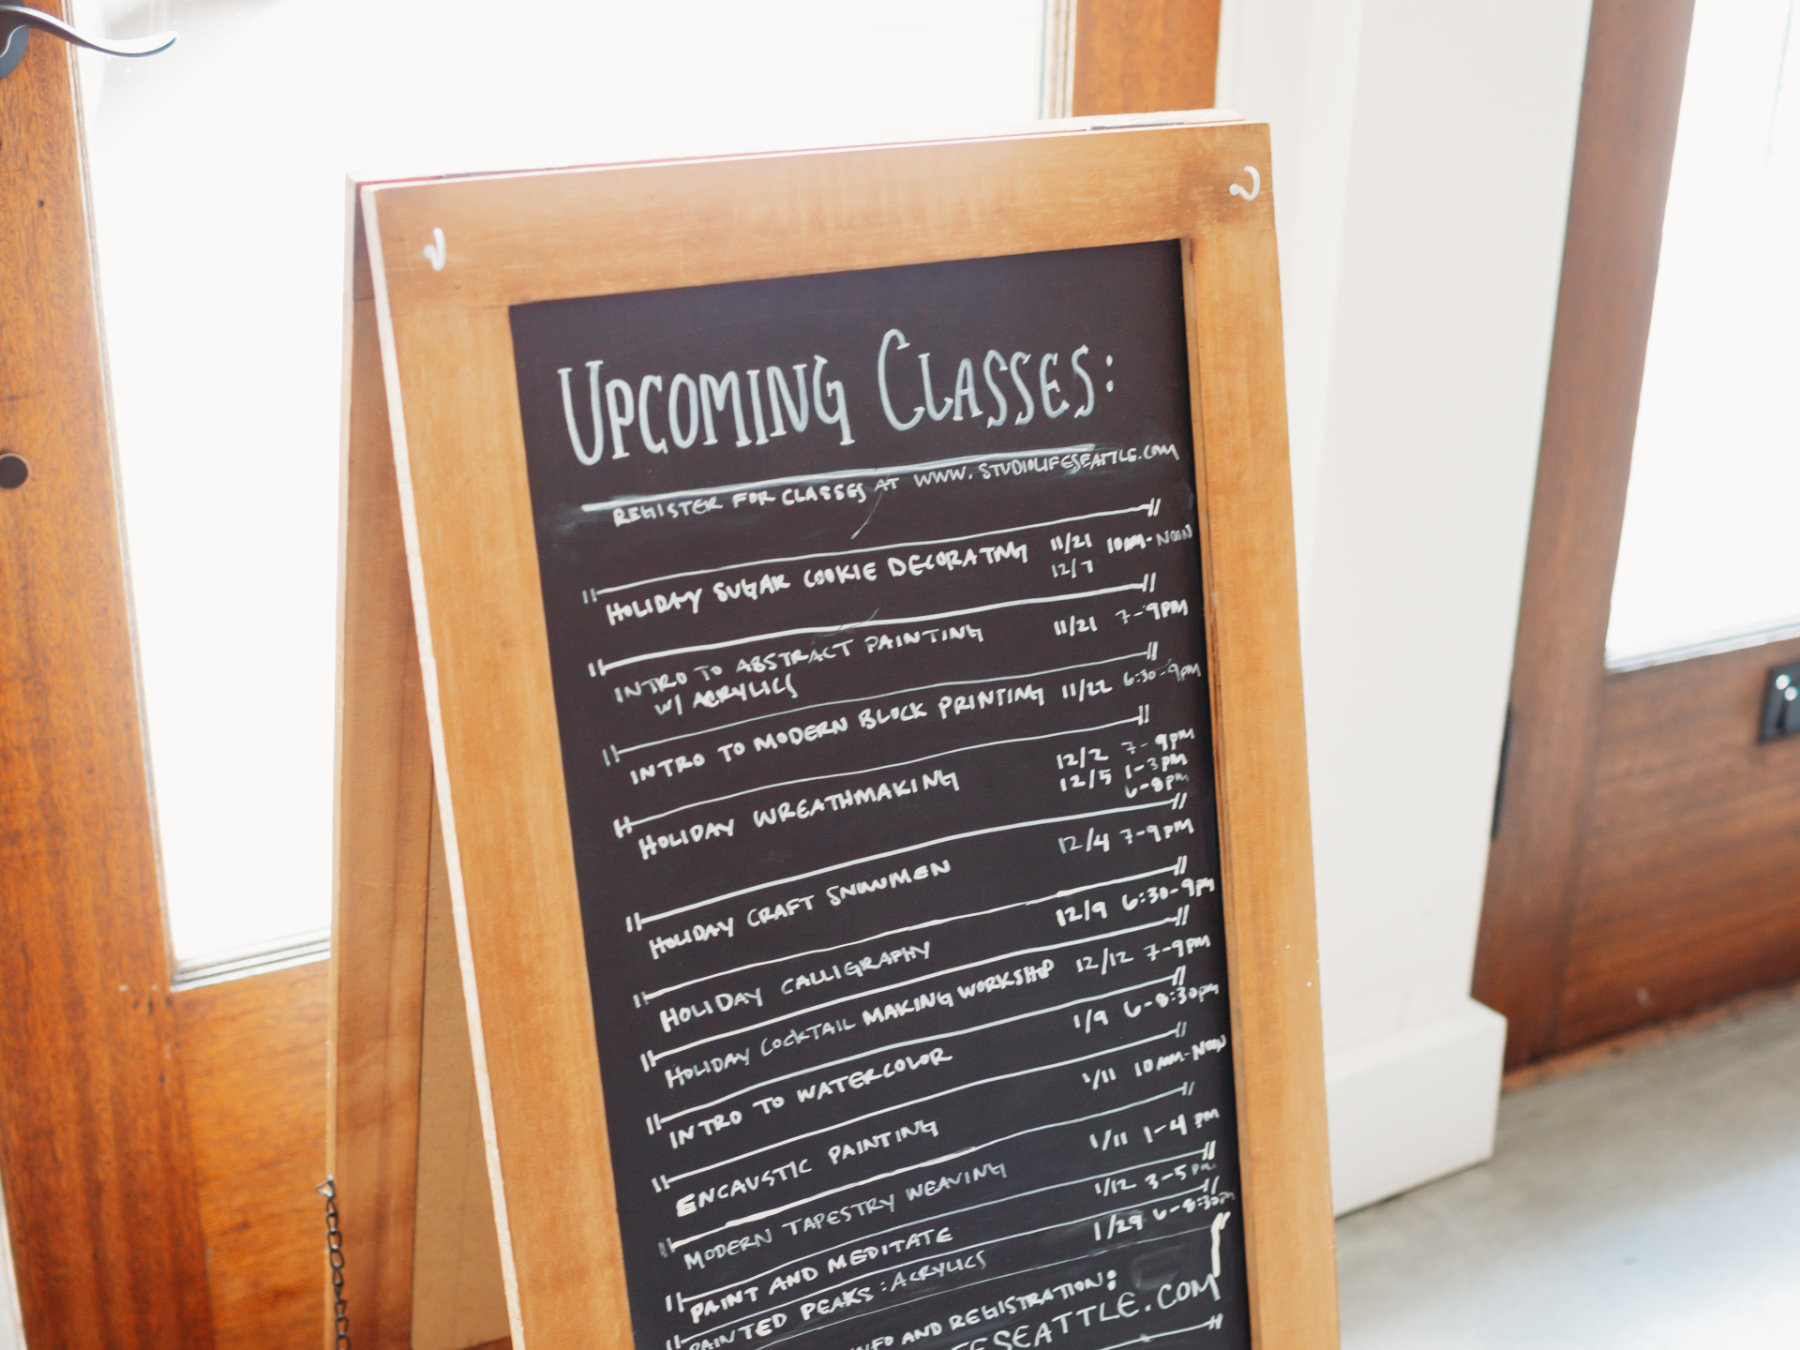 UPCOMING CLASSES:
REGISTER FOR CLASSES AT WWW.STUDIOLIFESEATTLE.COM
HOLIDAY SUGAR COOKIE DECORATING 11/21 10AM-NOON
12/7
INTRO TO ABSTRACT PAINTING 11/21 7-9PM
W/ ACRYLICS
INTRO TO MODERN BLOCK PRINTING 11/22 6:30-9PM
HOLIDAY WREATHMAKING 12/2 7-9PM
12/5 1-3PM
6-8PM
HOLIDAY CRAFT SNOWMEN 12/4 7-9PM
HOLIDAY CALLIGRAPHY 12/9 6:30-9PM
HOLIDAY COCKTAIL MAKING WORKSHOP 12/12 7-9PM
INTRO TO WATERCOLOR 1/9 6-8:30PM
ENCAUSTIC PAINTING 1/11 10AM-NOON
MODERN TAPESTRY WEAVING 1/11 1-4 PM
PAINT AND MEDITATE 1/12 3-5PM
PAINTED PEAKS: ACRYLICS 1/29 6-8:30PM
INFO AND REGISTRATION:
FESEATTLE.COM